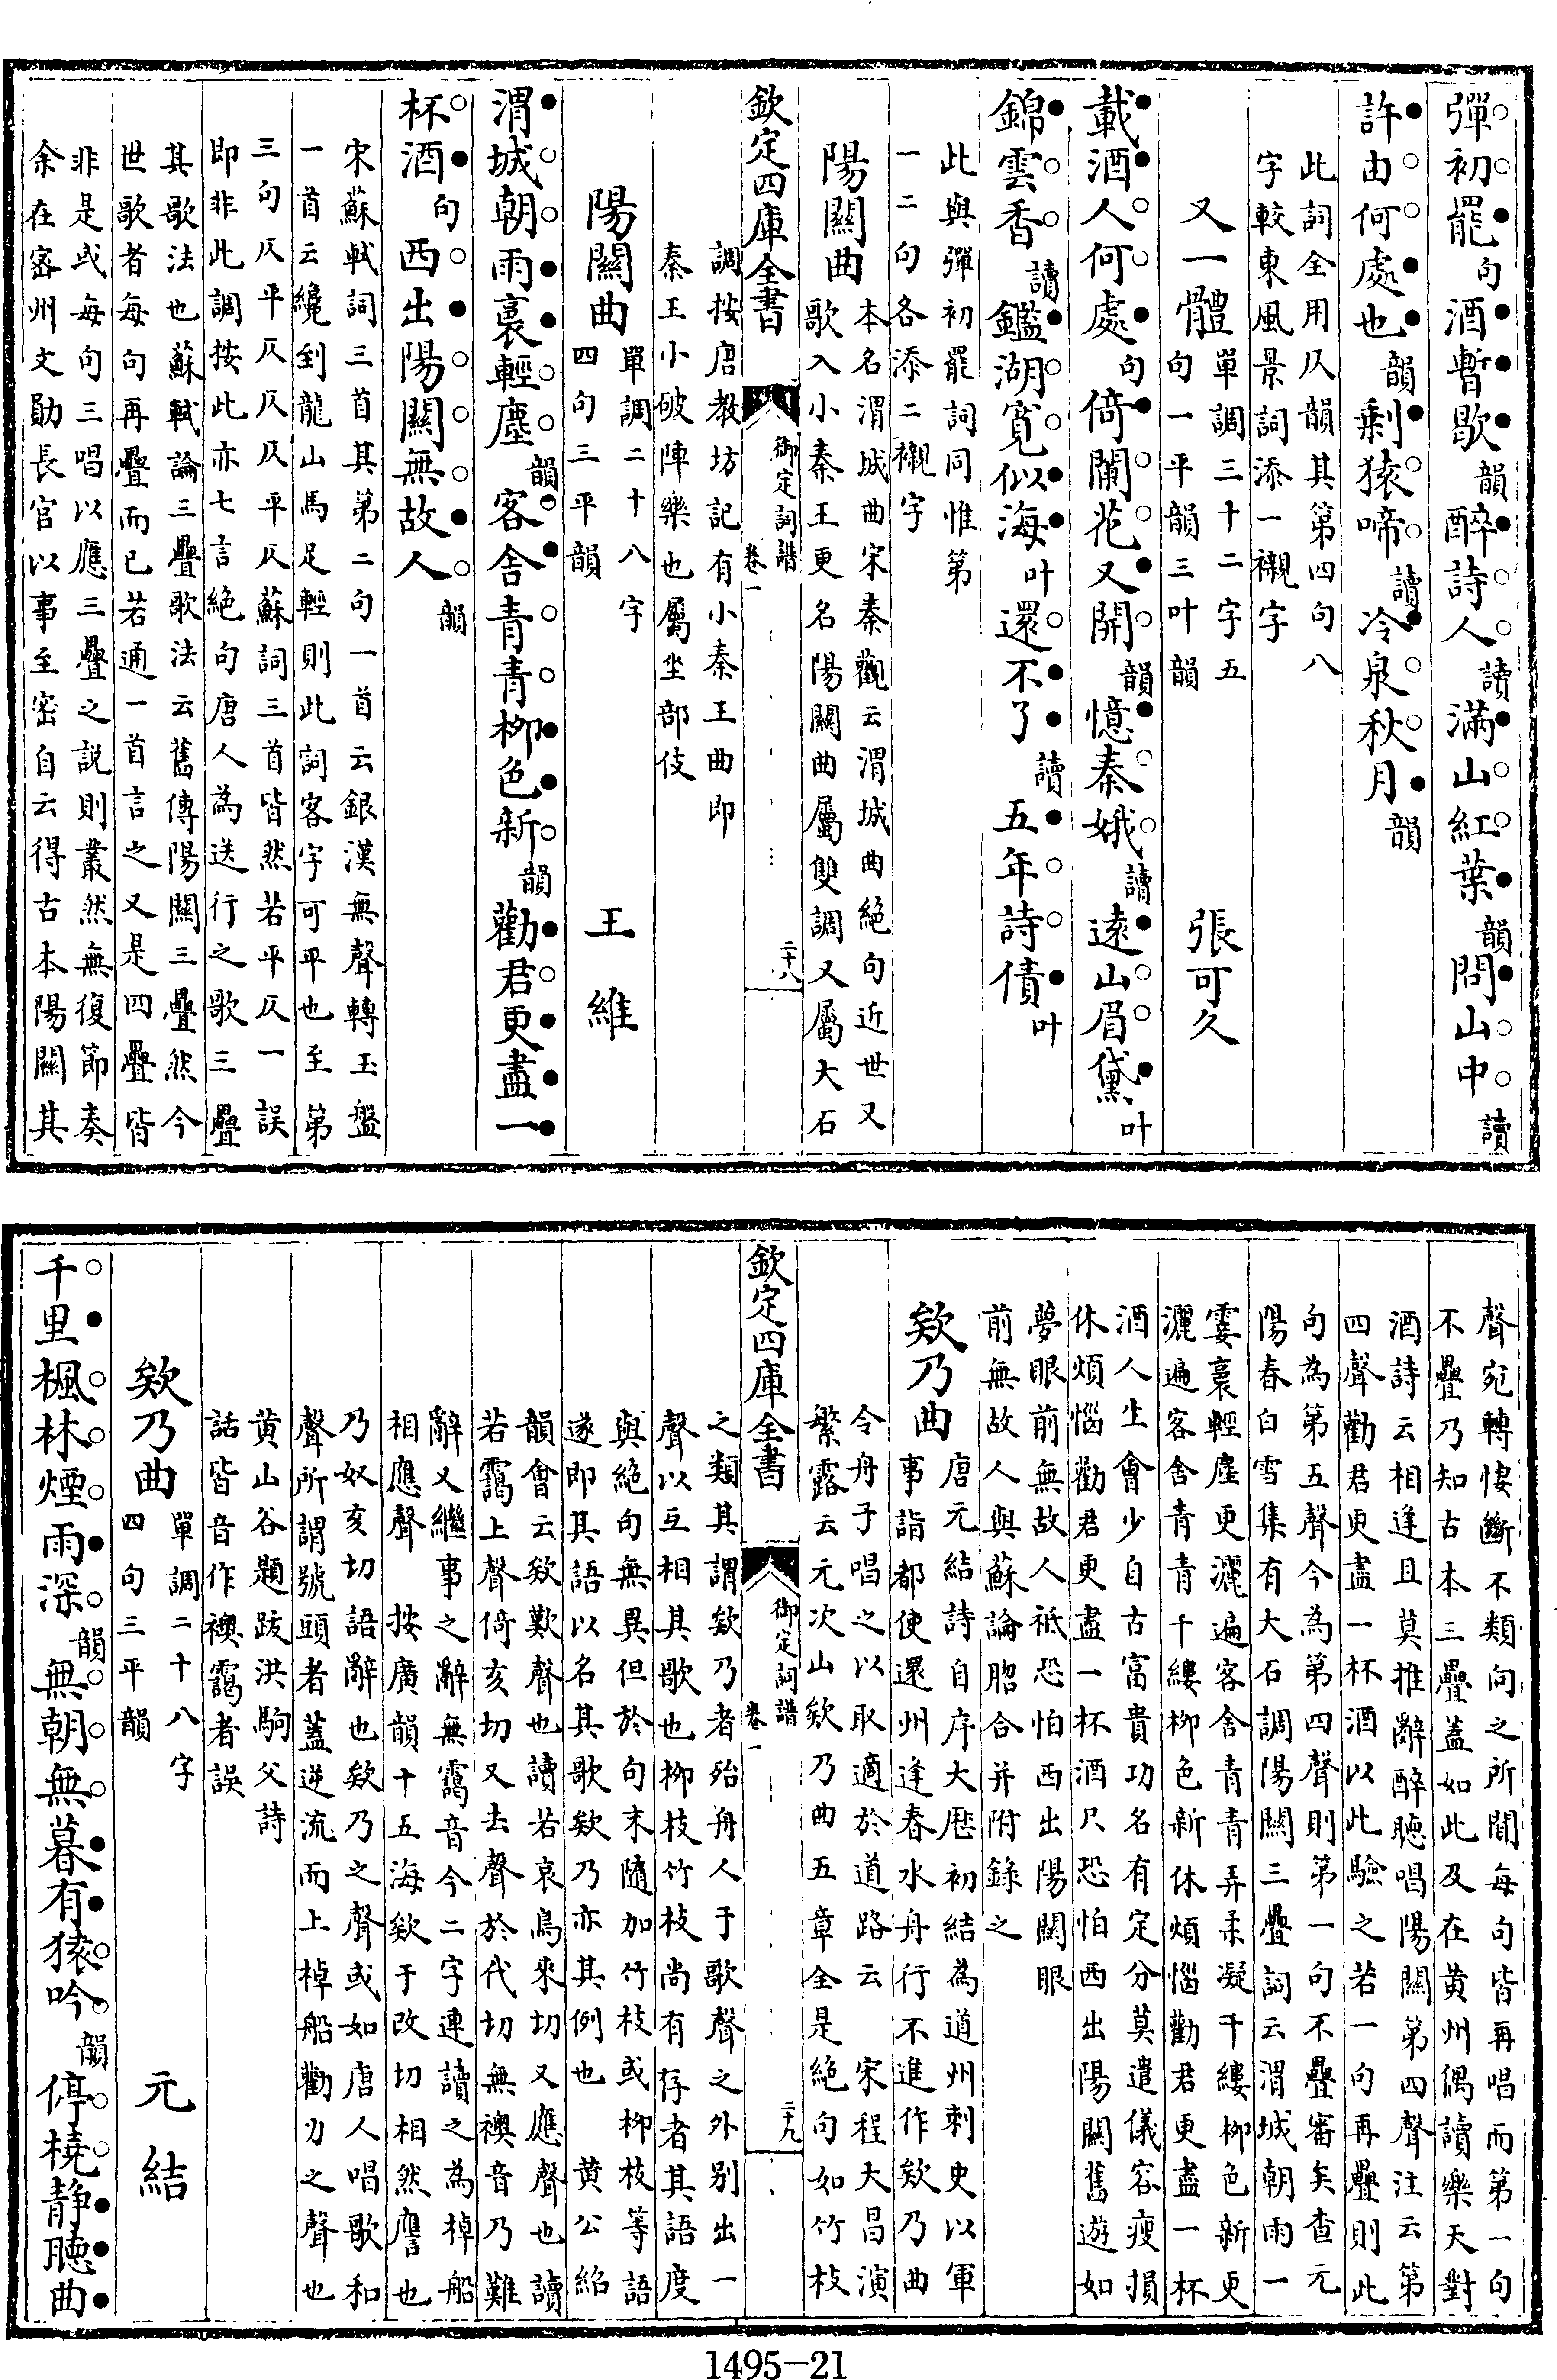 彈初罷句酒暫歇韻醉詩人讀滿山紅葉韻問山中讀
許由何處也韻剩猿啼讀冷泉秋月韻
此詞全用仄韻其第四句八
字較東風景詞添一襯字
又一體單調三十二字五
句一平韻三叶韻
張可久
載酒人何處句倚闌花又開韻憶秦娥讀遠山眉黛叶
錦雲香讀鑑湖寬似海叶還不了讀五年詩債叶
此與彈初罷詞同惟第
一二句各添二襯字
陽關曲本名渭城曲宋秦觀云渭城曲絕句近世又
歌入小秦王更名陽關曲屬雙調又屬大石
欽定四庫全書
御定詞譜
卷一
二十八
調按唐教坊記有小秦王曲即
秦王小破陣樂也屬坐部伎
陽關曲單調二十八字
四句三平韻
王維
渭城朝雨裛輕塵韻客舍青青柳色新韻勸君更盡一
杯酒句西出陽關無故人韻
宋蘇軾詞三首其第二句一首云銀漢無聲轉玉盤
一首云纔到龍山馬足輕則此詞客字可平也至第
三句仄平仄仄仄平仄蘇詞三首皆然若平仄一誤
即非此調按此亦七言絕句唐人為送行之歌三疊
其歌法也蘇軾論三疊歌法云舊傳陽關三疊然今
世歌者每句再疊而已若通一首言之又是四疊皆
非是或每句三唱以應三疊之說則叢然無復節奏
余在密州文勛長官以事至密自云得古本陽關其
聲宛轉悽斷不類向之所聞每句皆再唱而第一句
不疊乃知古本三疊蓋如此及在黃州偶讀樂天對
酒詩云相逢且莫推辭醉聽唱陽關第四聲注云第
四聲勸君更盡一杯酒以此驗之若一句再疊則此
句為第五聲今為第四聲則第一句不疊審矣查元
陽春白雪集有大石調陽關三疊詞云渭城朝雨一
霎裛輕塵更灑遍客舍青青弄柔凝千縷柳色新更
灑遍客舍青青千縷柳色新休煩惱勸君更盡一杯
酒人生會少自古富貴功名有定分莫遣儀容瘦損
休煩惱勸君更盡一杯酒只恐怕西出陽關舊遊如
夢眼前無故人祗恐怕西出陽關眼
前無故人與蘇論脗合并附錄之
欸乃曲唐元結詩自序大厯初結為道州刺史以軍
事詣都使還州逢春水舟行不進作欸乃曲
令舟子唱之以取適於道路云　宋程大昌演
繁露云元次山欸乃曲五章全是絕句如竹枝
欽定四庫全書
御定詞譜
卷一
二十九
之類其謂欸乃者殆舟人于歌聲之外別出一
聲以互相其歌也柳枝竹枝尚有存者其語度
與絕句無異但於句末隨加竹枝或柳枝等語
遂即其語以名其歌欸乃亦其例也　黃公紹
韻會云欸歎聲也讀若哀烏來切又應聲也讀
若靄上聲倚亥切又去聲於代切無襖音乃難
辭又繼事之辭無靄音今二字連讀之為棹船
相應聲　按廣韻十五海欸于改切相然譍也
乃奴亥切語辭也欸乃之聲或如唐人唱歌和
聲所謂號頭者蓋逆流而上棹船勸力之聲也
黃山谷題跋洪駒父詩
話皆音作襖靄者誤
欸乃曲單調二十八字
四句三平韻
元結
千里楓林煙雨深韻無朝無暮有猿吟韻停橈静聽曲
1495-21